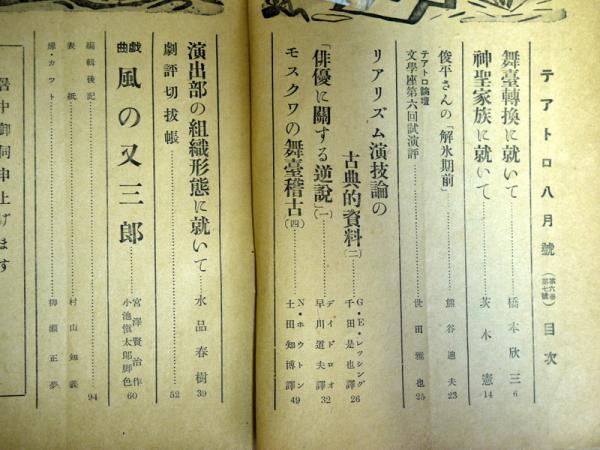 テアトロ八月號(第六卷第七號)目次
舞臺轉換に就いて……橋本欣三 6
神聖家族に就いて……茨木憲 14
俊平さんの「解氷期前」……熊谷迪夫 23
テアトロ論壇
文學座第六回試演評……世田雅也 25
リアリズム演技論の
古典的資料(二)……G・E・レッシング
千田是也譯 26
「俳優に關する逆說」(一)……デイドロオ
早川道夫譯 32
モスクワの舞臺稽古(四)……N・ホウトン
土田知博譯 49
演出部の組織形態に就いて……水品春樹 39
劇評切拔帳……52
戲曲 風の又三郎……宮澤賢治作
小池愼太郎脚色 60
編輯後記……94
表紙……村山知義
扉・カット……柳瀬正夢
暑中御伺申上げます